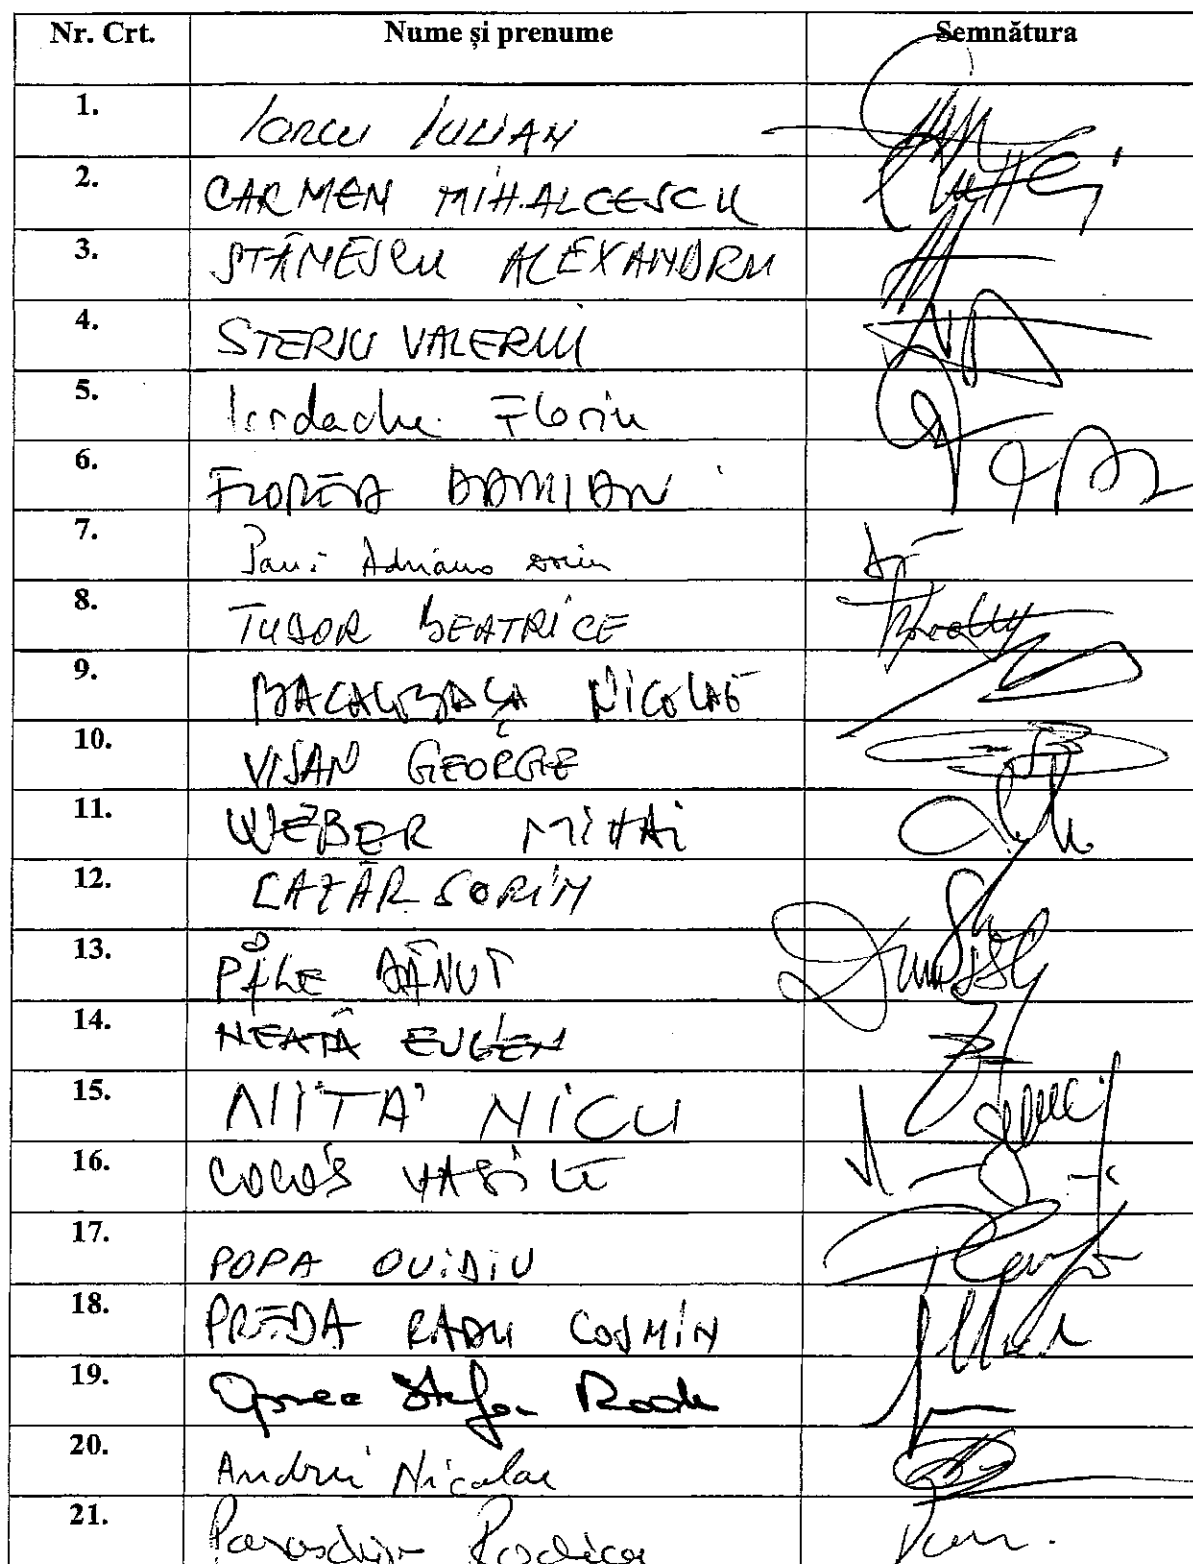 Nr. Crt. Nume și prenume Semnătura
1. Iorcu Iulian
2. CARMEN MIHALCESCU
3. STĂNESCU ALEXANDRU
4. STERIU VALERIU
5. Iordache Florin
6. FLOREA DAMIAN
7. Pani Adriano Dorin
8. TUDOR BEATRICE
9. BACALBAȘA NICOLAE
10. VISAN GEORGE
11. WEBER MIHAI
12. LAZĂR SORIN
13. PÂLE DĂNUȚ
14. NEAȚĂ EUGEN
15. NIȚĂ NICU
16. COCOȘ VASILE
17. POPA OVIDIU
18. PREDA RADU COSMIN
19. Oprea Ștefan Radu
20. Andrei Nicolae
21. Paraschiv Rodica